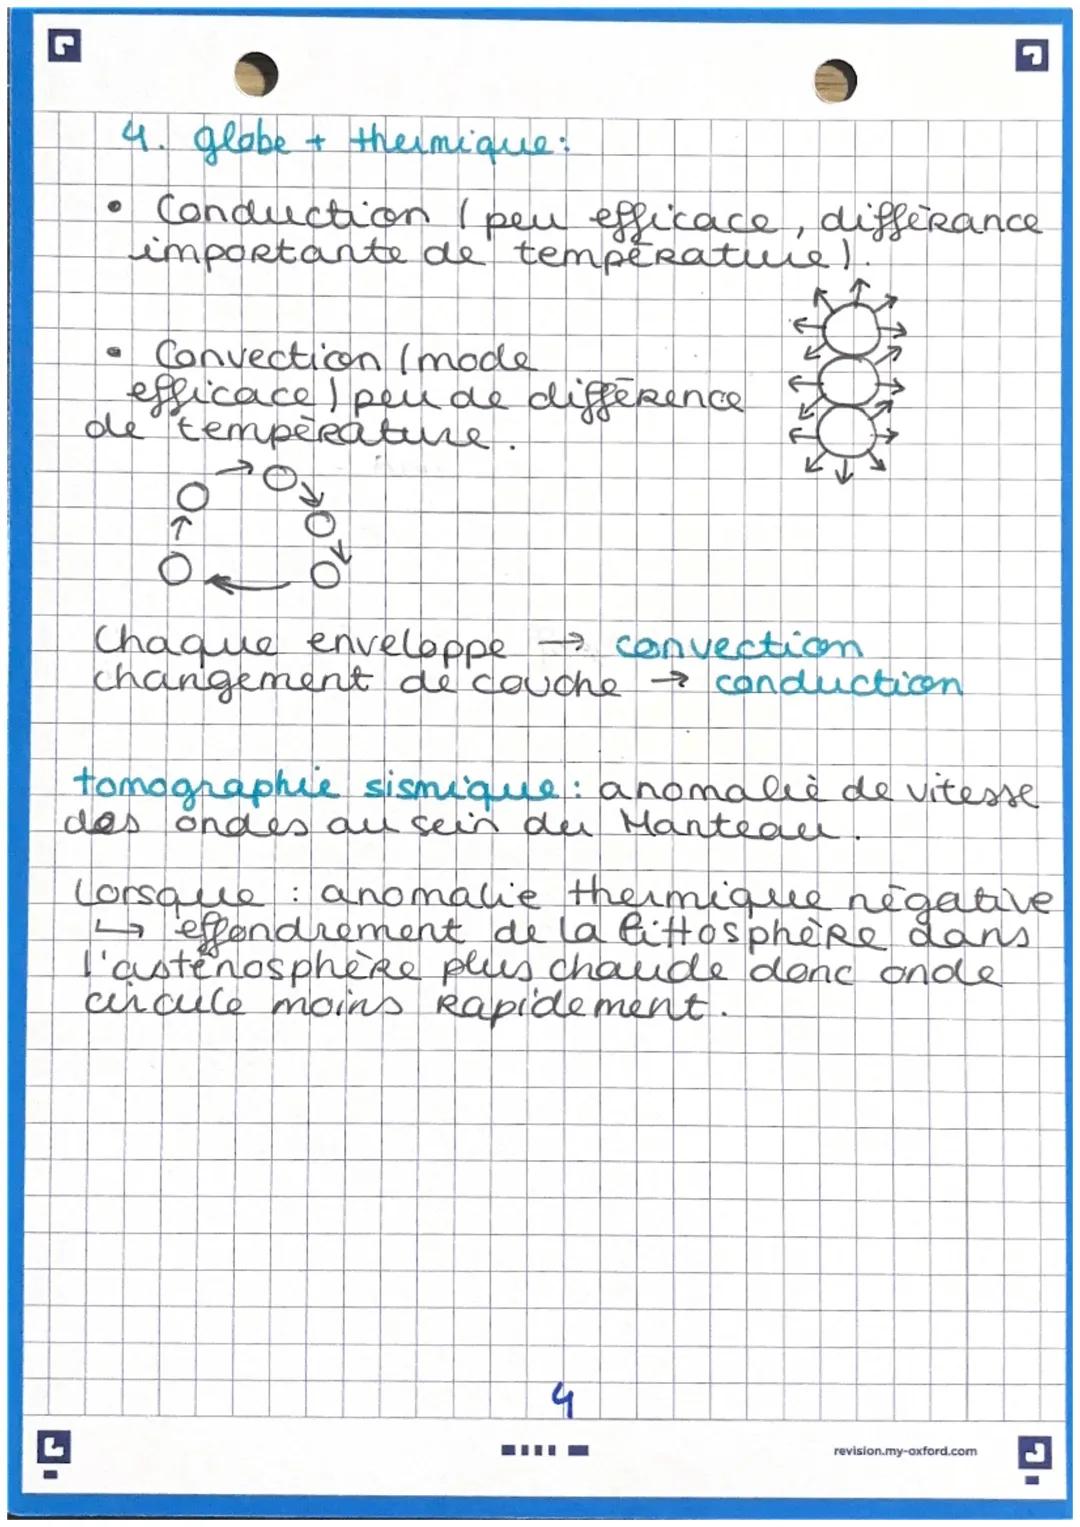 4. globe + thermique :
• Conduction (peu efficace, différance
importante de température).
• Convection (mode
efficace) peu de différence
de température.
Chaque enveloppe → convection
changement de couche → conduction
tomographie sismique : anomalie de vitesse
des ondes au sein du Manteau.
Lorsque : anomalie thermique négative
↳ effondrement de la littosphère dans
l'asténosphère plus chaude donc onde
circule moins rapidement.
4
revision.my-oxford.com